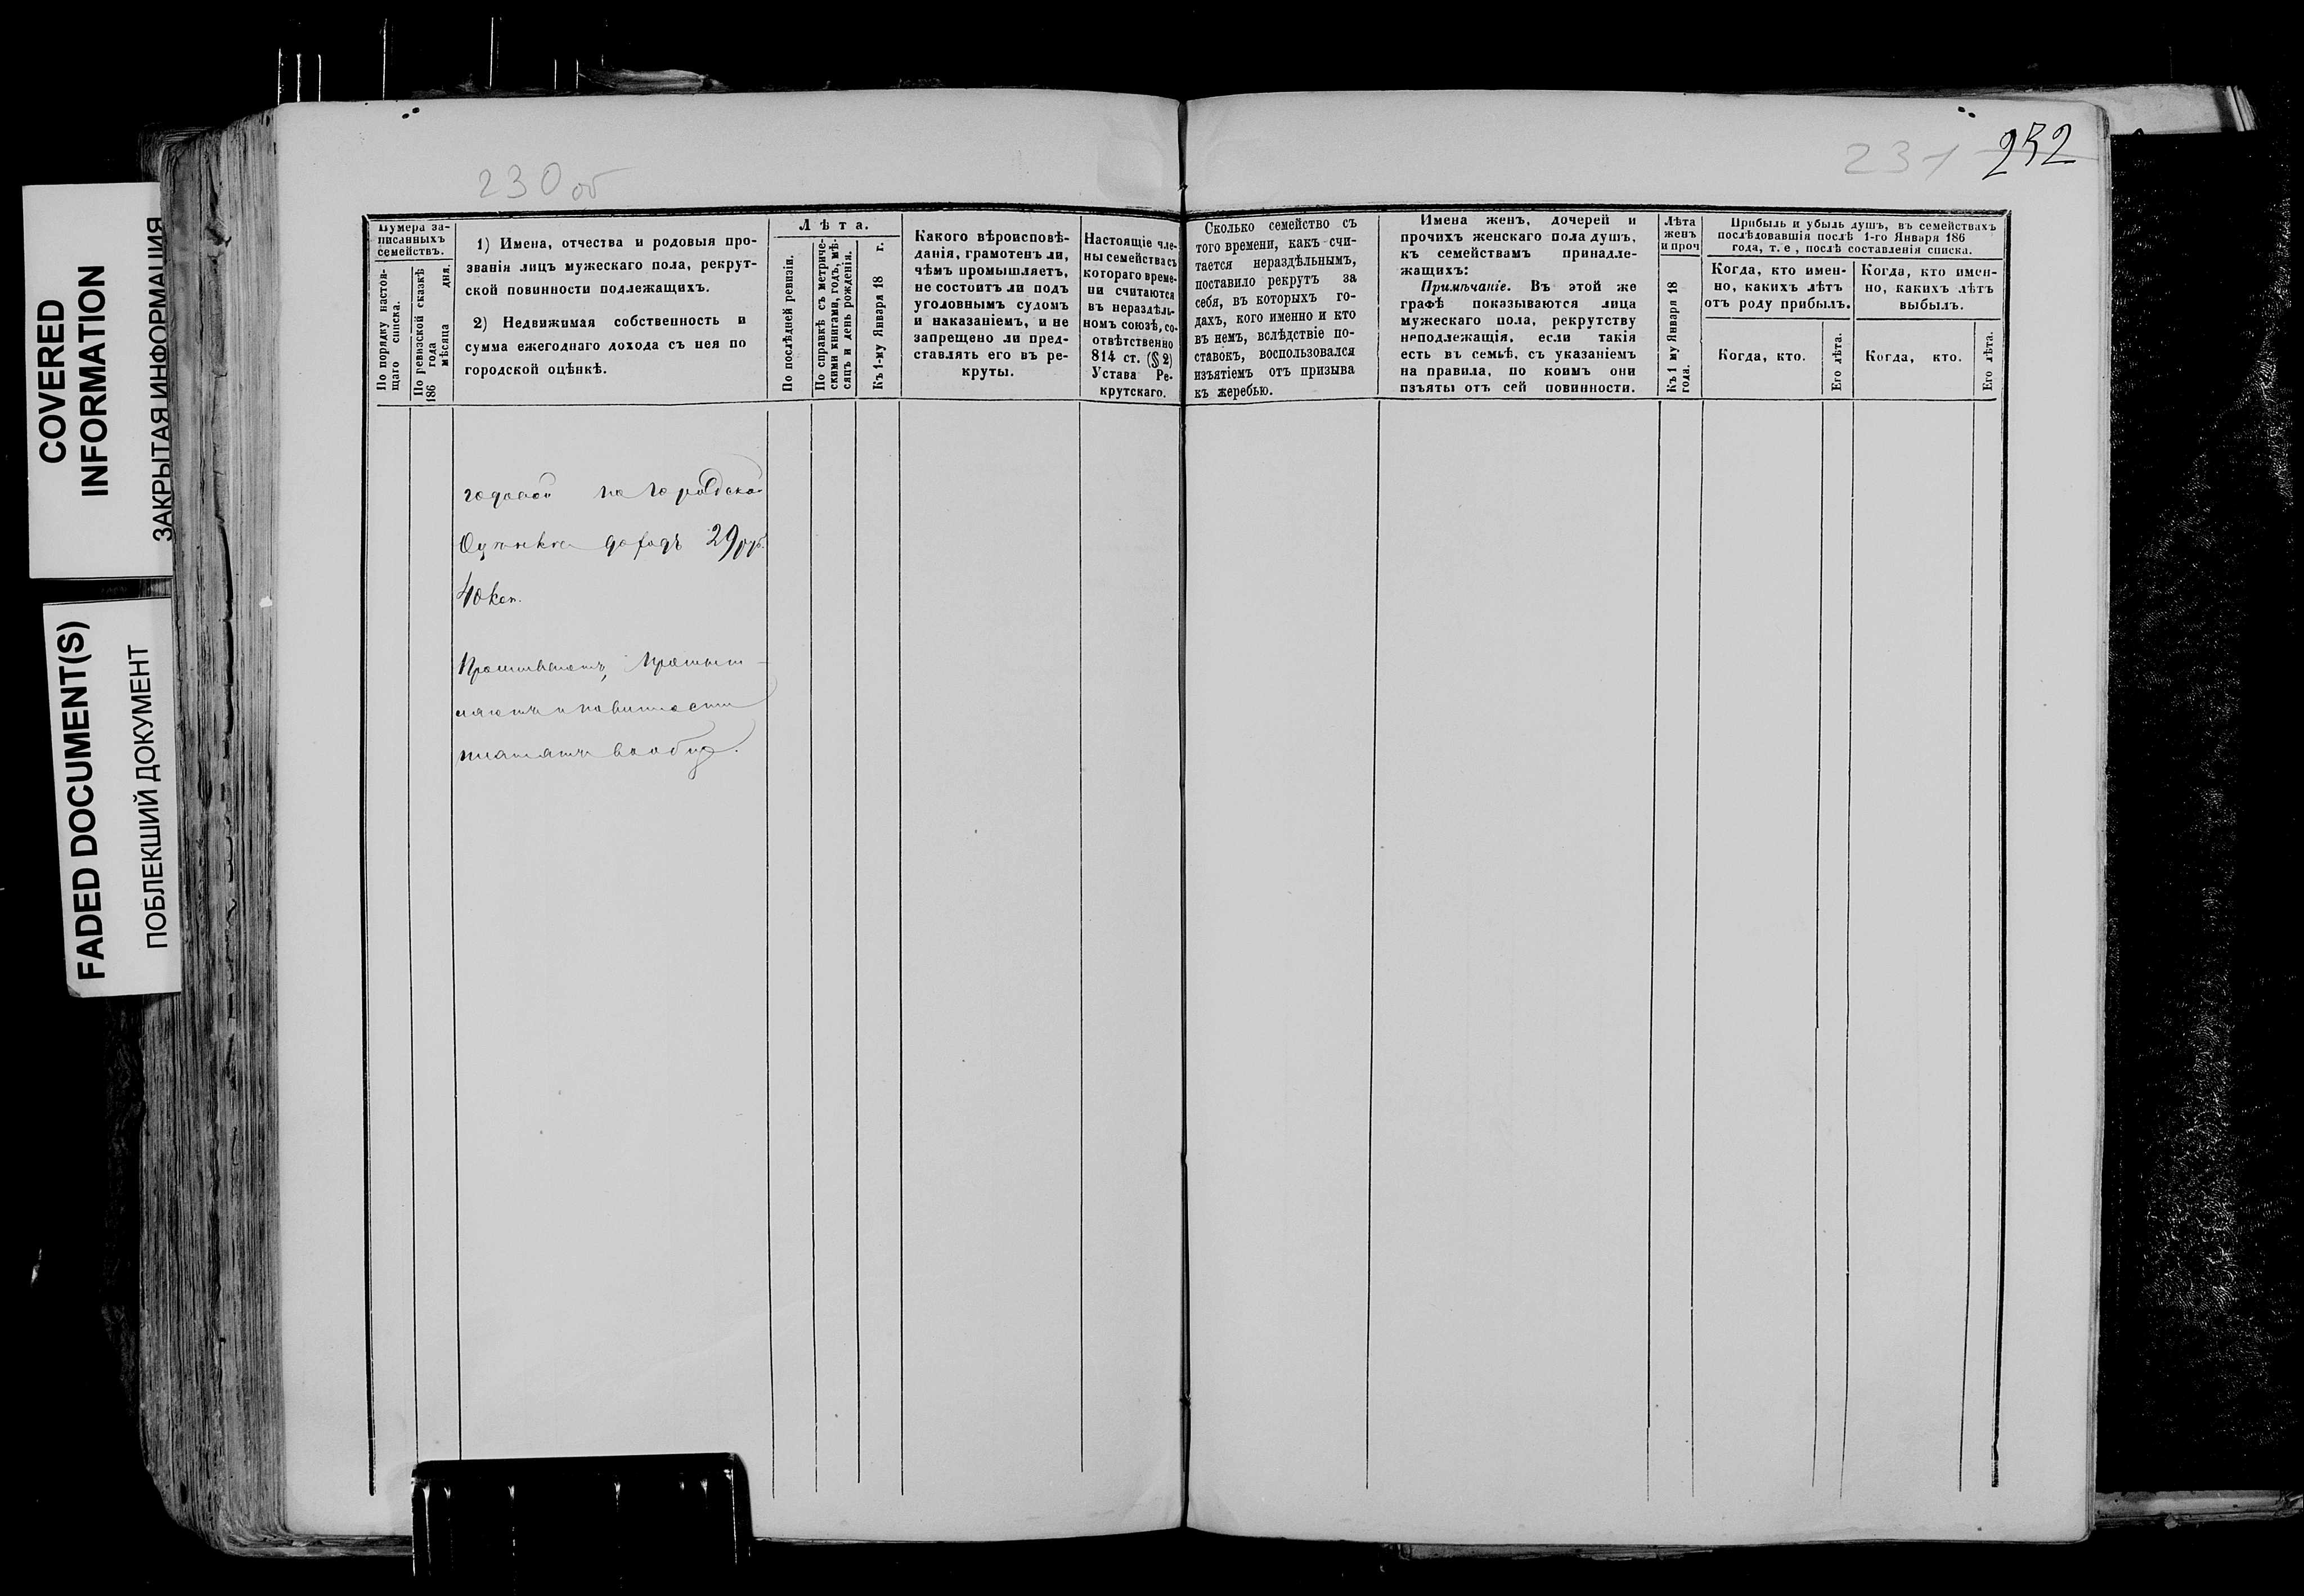 COVERED
INFORMATION
ЗАКРЫТАЯ ИНФОРМАЦИЯ
FADED DOCUMENT(S)
ПОБЛЕКШИЙ ДОКУМЕНТ
230 об
231 232
Нумера за-
писанныхъ
семействъ.
По порядку настоя-
щаго списка.
По ревизской сказкѣ
186 года мѣсяца дня.
1) Имена, отчества и родовыя про-
званія лицъ мужескаго пола, рекрут-
ской повинности подлежащихъ.
2) Недвижимая собственность и
сумма ежегоднаго дохода съ нея по
городской оцѣнкѣ.
Лѣта.
По послѣдней ревизіи.
По справкѣ съ метриче-
скими книгами, годъ, мѣ-
сяцъ и день рожденія.
Къ 1-му Января 18 г.
Какого вѣроисповѣ-
данія, грамотенъ ли,
чѣмъ промышляетъ,
не состоитъ ли подъ
уголовнымъ судомъ
и наказаніемъ, и не
запрещено ли пред-
ставлять его въ ре-
круты.
Настоящіе чле-
ны семейства съ
котораго време-
ни считаются
въ нераздѣль-
номъ союзѣ, со-
отвѣтственно
814 ст. (§ 2)
Устава Ре-
крутскаго.
Сколько семейство съ
того времени, какъ счи-
тается нераздѣльнымъ,
поставило рекрутъ за
себя, въ которыхъ го-
дахъ, кого именно и кто
въ немъ, вслѣдствіе по-
ставокъ, воспользовался
изъятіемъ отъ призыва
къ жеребью.
Имена женъ, дочерей и
прочихъ женскаго пола душъ,
къ семействамъ принадле-
жащихъ:
Примѣчаніе. Въ этой же
графѣ показываются лица
мужескаго пола, рекрутству
неподлежащія, если такія
есть въ семьѣ, съ указаніемъ
на правила, по коимъ они
изъяты отъ сей повинности.
Лѣта
женъ
и проч
Къ 1 му Января 18
года.
Прибыль и убыль душъ, въ семействахъ
послѣдовавшія послѣ 1-го Января 186
года, т. е, послѣ составленія списка.
Когда, кто имен-
но, какихъ лѣтъ
отъ роду прибылъ.
Когда, кто.
Его лѣта.
Когда, кто имен-
но, какихъ лѣтъ
выбылъ.
Когда, кто.
Его лѣта.
годовой по городской
Оцѣнке доходъ 29 руб.
40 коп.
Проживаютъ, промыш-
ляютъ и повинности
платятъ вообще.